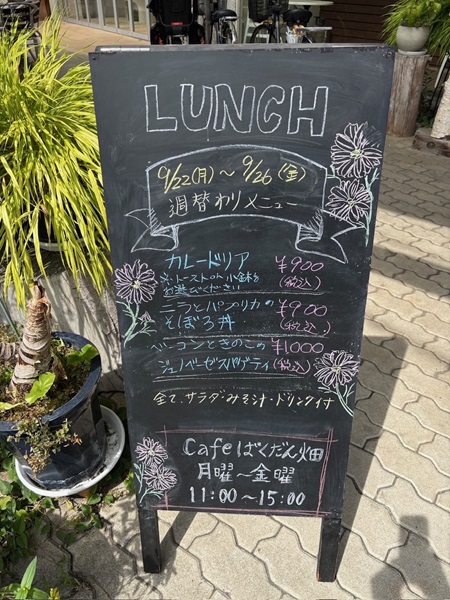 LUNCH
9/22(月)～9/26(金)
週替わりメニュー
カレードリア ¥900
※トーストor小鉢を (税込)
お選びください
ニラとパプリカの ¥900
そぼろ丼 (税込)
ベーコンときのこの ¥1000
ジェノベーゼスパゲティ (税込)
全て、サラダ・みそ汁・ドリンク付
Cafeばくだん畑
月曜～金曜
11:00～15:00